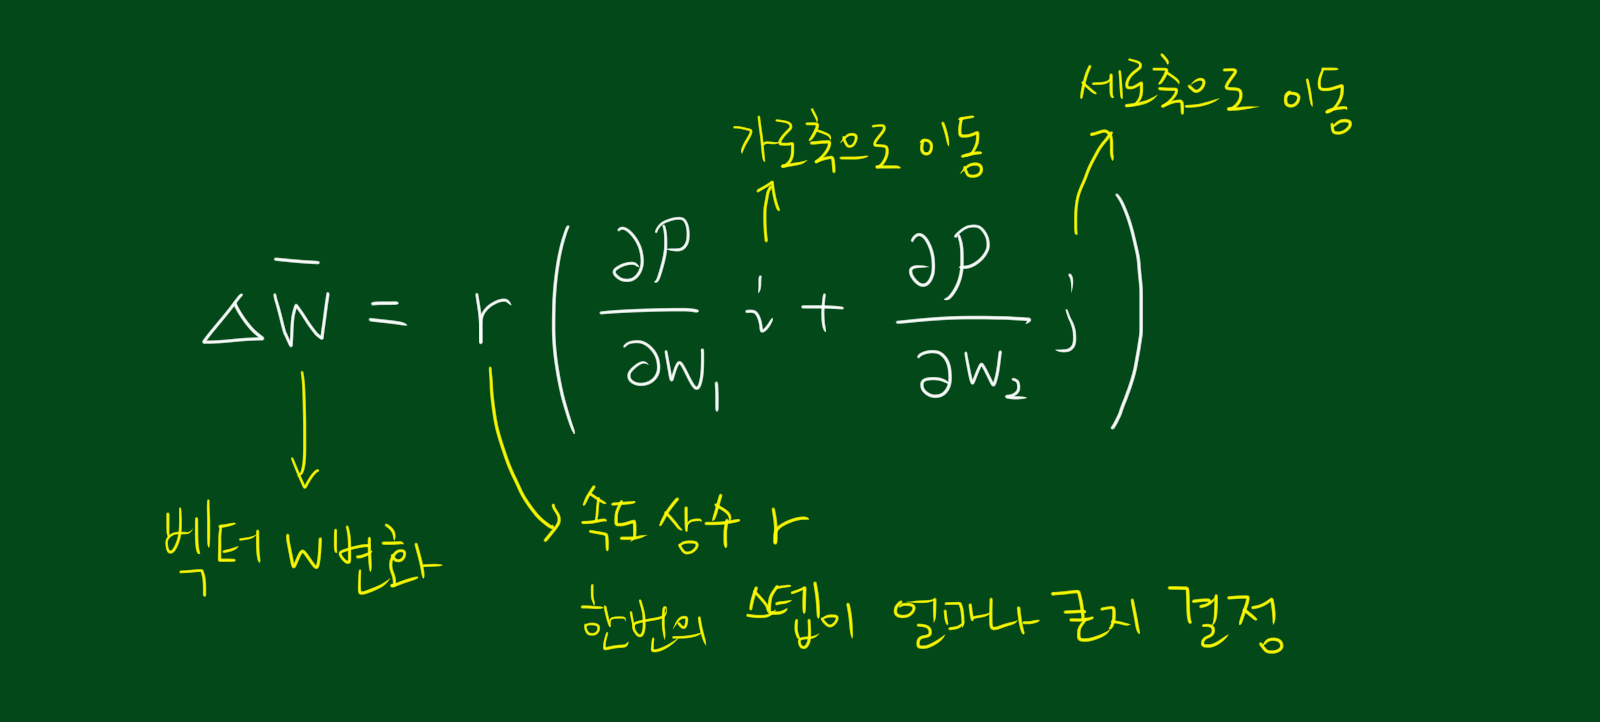 세로축으로 이동
가로축으로 이동
△W̅ = r ( ∂P/∂w₁ i + ∂P/∂w₂ j )
벡터 w변화
속도 상수 r
한번의 스텝이 얼마나 큰지 결정